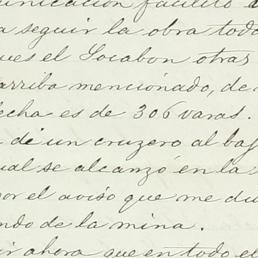 nicacion facilito
a seguir la obra todo
ues el Socabon otras
arriba mencionado, de
fecha es de 306 varas.
de un cruzero al baj
ual se alcanzó en la
por el aviso que me du
ndo de la mina.
ir ahora que en todo el